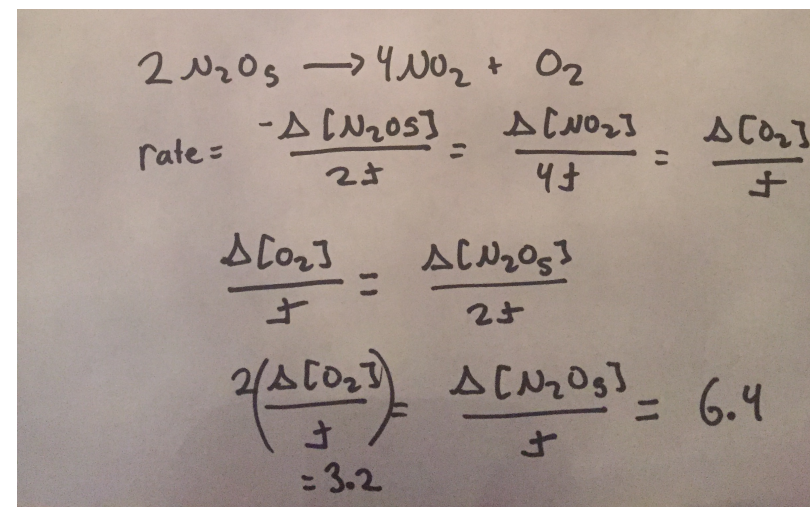 2 N₂O₅ → 4NO₂ + O₂
rate = -Δ[N₂O5]/2t = Δ[NO₂]/4t = Δ[O₂]/t
Δ[O₂]/t = Δ[N₂O₅]/2t
2(Δ[O₂]/t) = Δ[N₂O₅]/t = 6.4
= 3.2